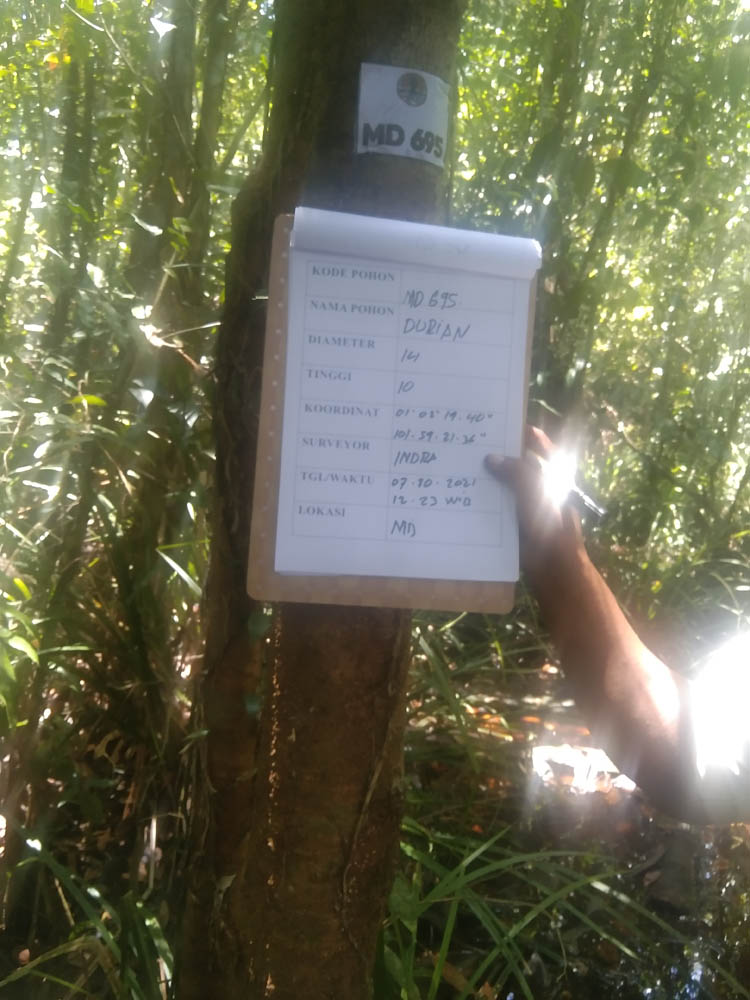 MD 695
KODE POHON MD 695
NAMA POHON DURIAN
DIAMETER 14
TINGGI 10
KOORDINAT 01° 03' 19.40"
101.59.21.36"
SURVEYOR INDRA
TGL/WAKTU 07.10.2021
12.23 WIB
LOKASI MD